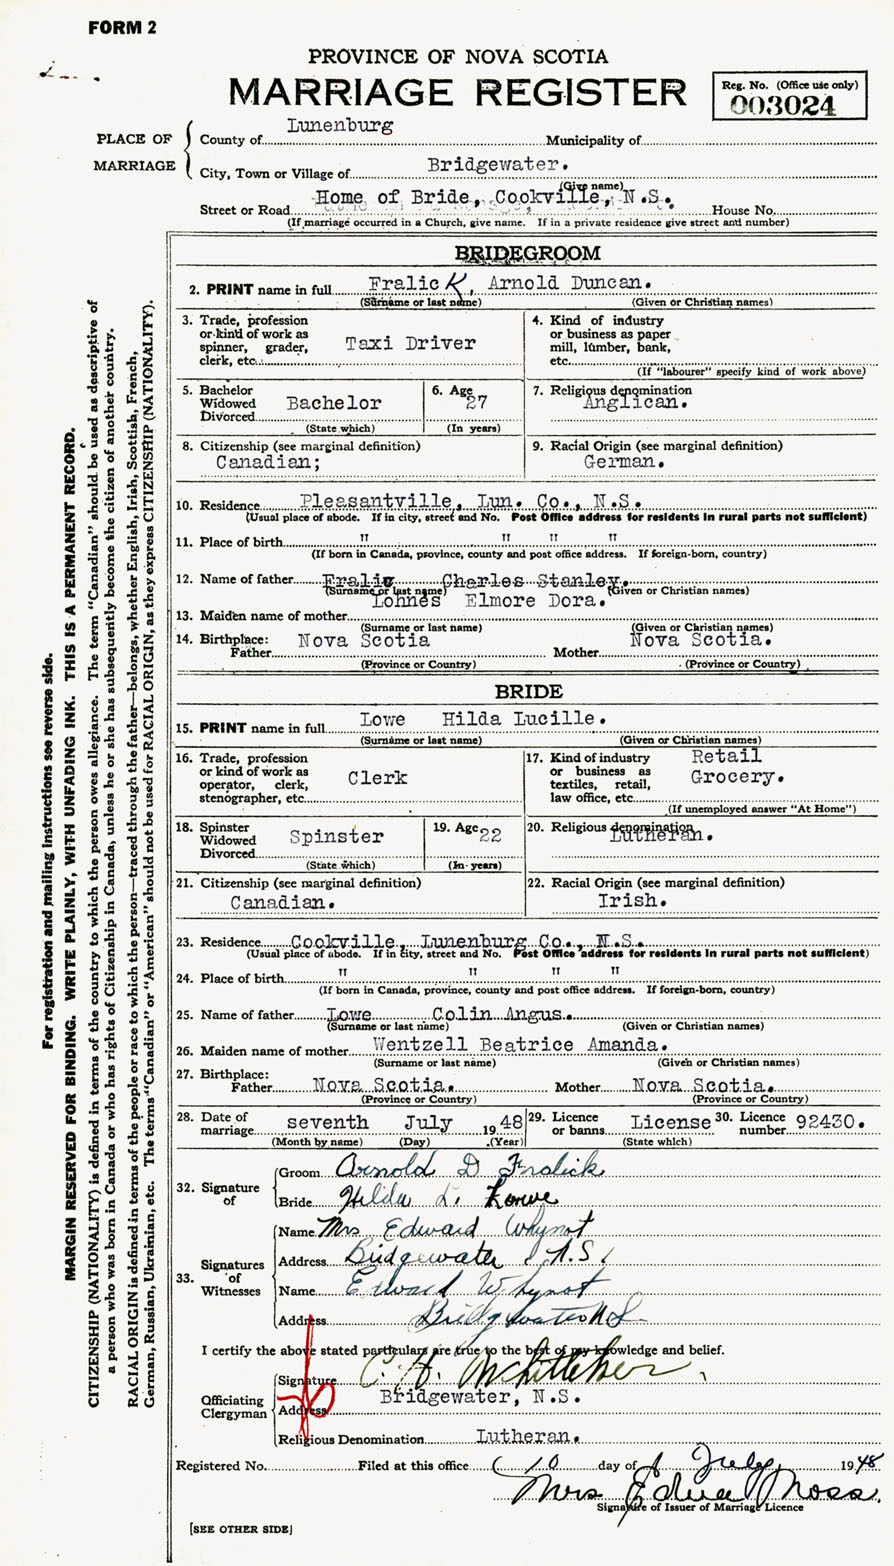 FORM 2
PROVINCE OF NOVA SCOTIA
MARRIAGE REGISTER
Reg. No. (Office use only)
003024
PLACE OF MARRIAGE
County of Lunenburg Municipality of
City, Town or Village of Bridgewater.
(Give name)
Street or Road Home of Bride, Cookville, N.S. House No.
(If marriage occurred in a Church, give name. If in a private residence give street and number)
BRIDEGROOM
2. PRINT name in full Fralick, Arnold Duncan.
(Surname or last name) (Given or Christian names)
3. Trade, profession or kind of work as spinner, grader, clerk, etc. Taxi Driver
4. Kind of industry or business as paper mill, lumber, bank, etc.
(If "labourer" specify kind of work above)
5. Bachelor Widowed Divorced Bachelor
(State which)
6. Age 27
(In years)
7. Religious denomination
Anglican.
8. Citizenship (see marginal definition)
Canadian;
9. Racial Origin (see marginal definition)
German.
10. Residence Pleasantville, Lun. Co., N.S.
(Usual place of abode. If in city, street and No. Post Office address for residents in rural parts not sufficient)
11. Place of birth " " " "
(If born in Canada, province, county and post office address. If foreign-born, country)
12. Name of father Fralic Charles Stanley.
(Surname or last name) (Given or Christian names)
13. Maiden name of mother Lohnes Elmore Dora.
(Surname or last name) (Given or Christian names)
14. Birthplace: Father Nova Scotia Mother Nova Scotia.
(Province or Country) (Province or Country)
BRIDE
15. PRINT name in full Lowe Hilda Lucille.
(Surname or last name) (Given or Christian names)
16. Trade, profession or kind of work as operator, clerk, stenographer, etc. Clerk
17. Kind of industry or business as textiles, retail, law office, etc. Retail Grocery.
(If unemployed answer "At Home")
18. Spinster Widowed Divorced Spinster
(State which)
19. Age 22
(In years)
20. Religious denomination
Lutheran.
21. Citizenship (see marginal definition)
Canadian.
22. Racial Origin (see marginal definition)
Irish.
23. Residence Cookville, Lunenburg Co., N.S.
(Usual place of abode. If in city, street and No. Post Office address for residents in rural parts not sufficient)
24. Place of birth " " " "
(If born in Canada, province, county and post office address. If foreign-born, country)
25. Name of father Lowe Colin Angus.
(Surname or last name) (Given or Christian names)
26. Maiden name of mother Wentzell Beatrice Amanda.
(Surname or last name) (Given or Christian names)
27. Birthplace: Father Nova Scotia. Mother Nova Scotia.
(Province or Country) (Province or Country)
28. Date of marriage seventh July 1948
(Month by name) (Day) (Year)
29. Licence or banns License
(State which)
30. Licence number 92430.
32. Signature of
Groom Arnold D Fralick
Bride Hilda L. Lowe
33. Signatures of Witnesses
Name Mrs Edward Whynot
Address Bridgewater N.S.
Name Edward Whynot
Address Bridgewater N S
I certify the above stated particulars are true to the best of my knowledge and belief.
Officiating Clergyman
Signature C. H. Whitteker
Address Bridgewater, N.S.
Religious Denomination Lutheran.
Registered No. Filed at this office 10 day of July 1948
Mrs Edna Moss
Signature of Issuer of Marriage Licence
[SEE OTHER SIDE]
For registration and mailing instructions see reverse side.
MARGIN RESERVED FOR BINDING. WRITE PLAINLY, WITH UNFADING INK. THIS IS A PERMANENT RECORD.
CITIZENSHIP (NATIONALITY) is defined in terms of the country to which the person owes allegiance. The term "Canadian" should be used as descriptive of
a person who was born in Canada or who has rights of Citizenship in Canada, unless he or she has subsequently become the citizen of another country.
RACIAL ORIGIN is defined in terms of the people or race to which the person—traced through the father—belongs, whether English, Irish, Scottish, French,
German, Russian, Ukrainian, etc. The terms "Canadian" or "American" should not be used for RACIAL ORIGIN, as they express CITIZENSHIP (NATIONALITY).